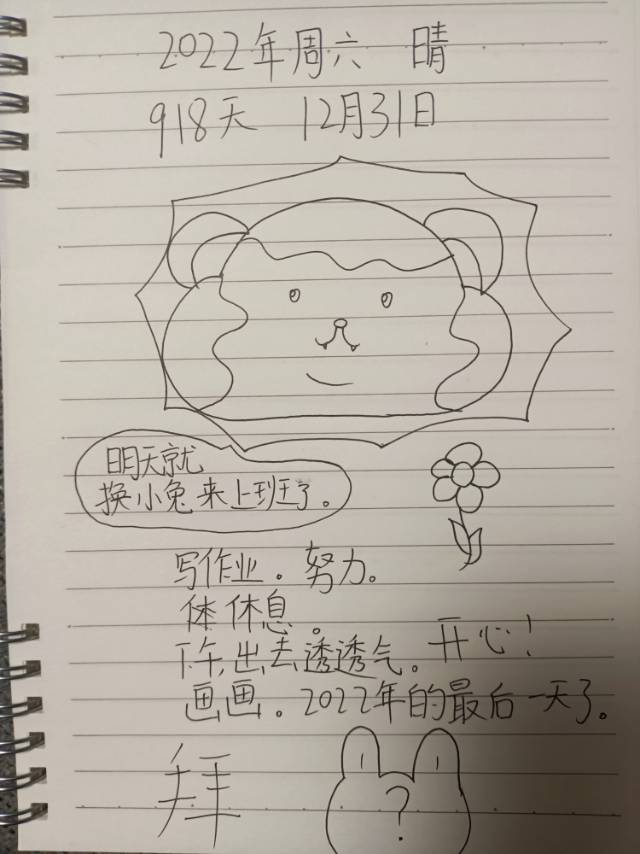 2022年周六 晴
918天 12月31日
明天就
换小兔来上班了。
写作业。努力。
体休息。
下午,出去透透气。开心!
画画。2022年的最后一天了。
拜
?